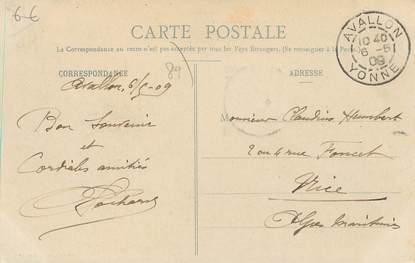 66
CARTE POSTALE
La Correspondance au recto n'est pas acceptée par tous les Pays Étrangers. (Se renseigner à la Poste)
CORRESPONDANCE
ADRESSE
AVALLON
10 40
6 - 5
09
YONNE
Avallon, 6/5-09
Bon Souvenir
et
Cordiales amitiés
Monsieur Claudius Humbert
2 ou 4 rue Foncet
Nice
Alpes Maritimes